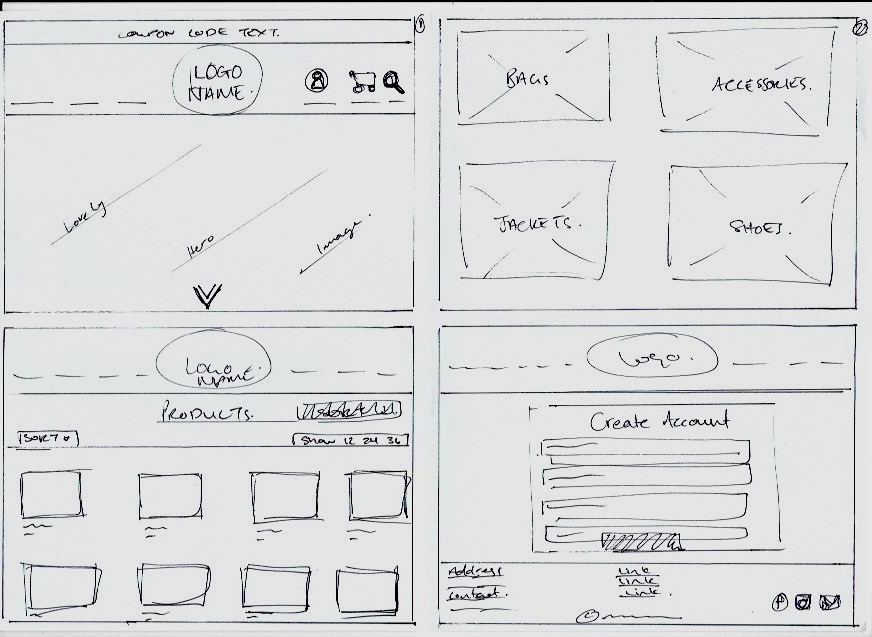 COUPON CODE TEXT.
1
LOGO
NAME.
Lovely
Hero
Image.
2
BAGS
ACCESSORIES.
JACKETS.
SHOES.
LOGO
NAME.
PRODUCTS.
SORT
Show 12 24 36
Logo.
Create Account
Address
Contact.
Link
Link
Link.
f